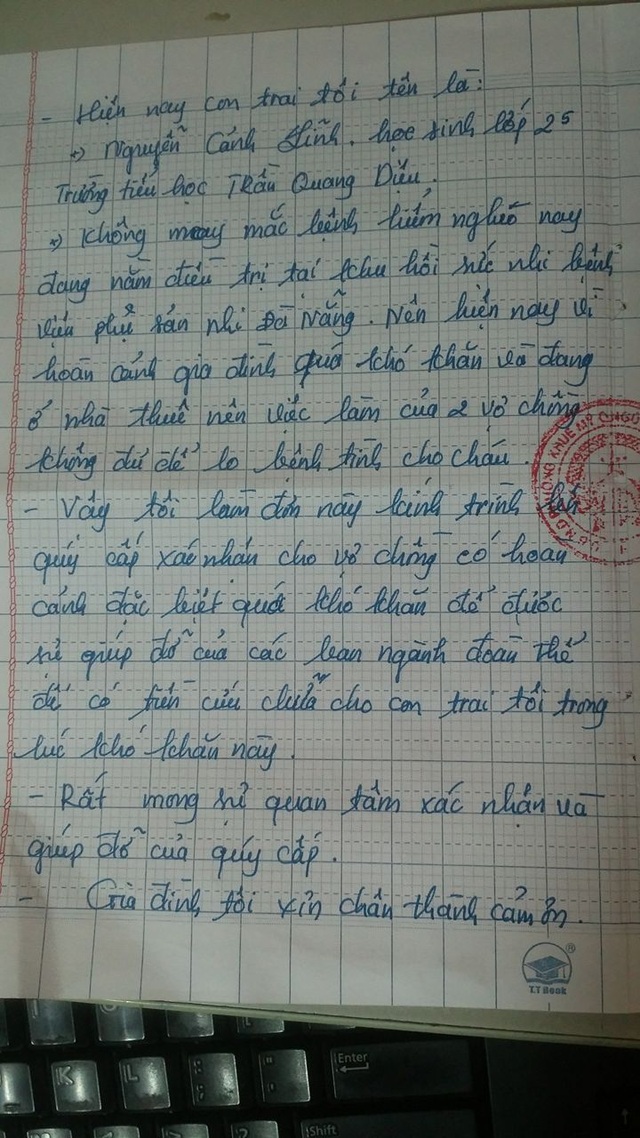 - Hiện nay con trai tôi tên là:
=> Nguyễn Cảnh Hinh. học sinh lớp 2⁵
Trường tiểu học Trần Quang Diệu.
=> Không may mắc bệnh hiểm nghèo nay
đang nằm điều trị tại khu hồi sức nhi bệnh
viện phụ sản nhi Đà Nẵng. Nên hiện nay vì
hoàn cảnh gia đình quá khó khăn và đang
ở nhà thuê nên việc làm của 2 vợ chồng
không đủ để lo bệnh tình cho cháu.
- Vậy tôi làm đơn này kính trình lên
quý cấp xác nhận cho vợ chồng có hoàn
cảnh đặc biệt quá khó khăn để được
sự giúp đỡ của các ban ngành đoàn thể
để có tiền cứu chữa cho con trai tôi trong
lúc khó khăn này.
- Rất mong sự quan tâm xác nhận và
giúp đỡ của quý cấp.
- Gia đình tôi xin chân thành cảm ơn.
KHUÊ MỸ Q.NGŨ
T.T Book
Enter
K
L
Shift